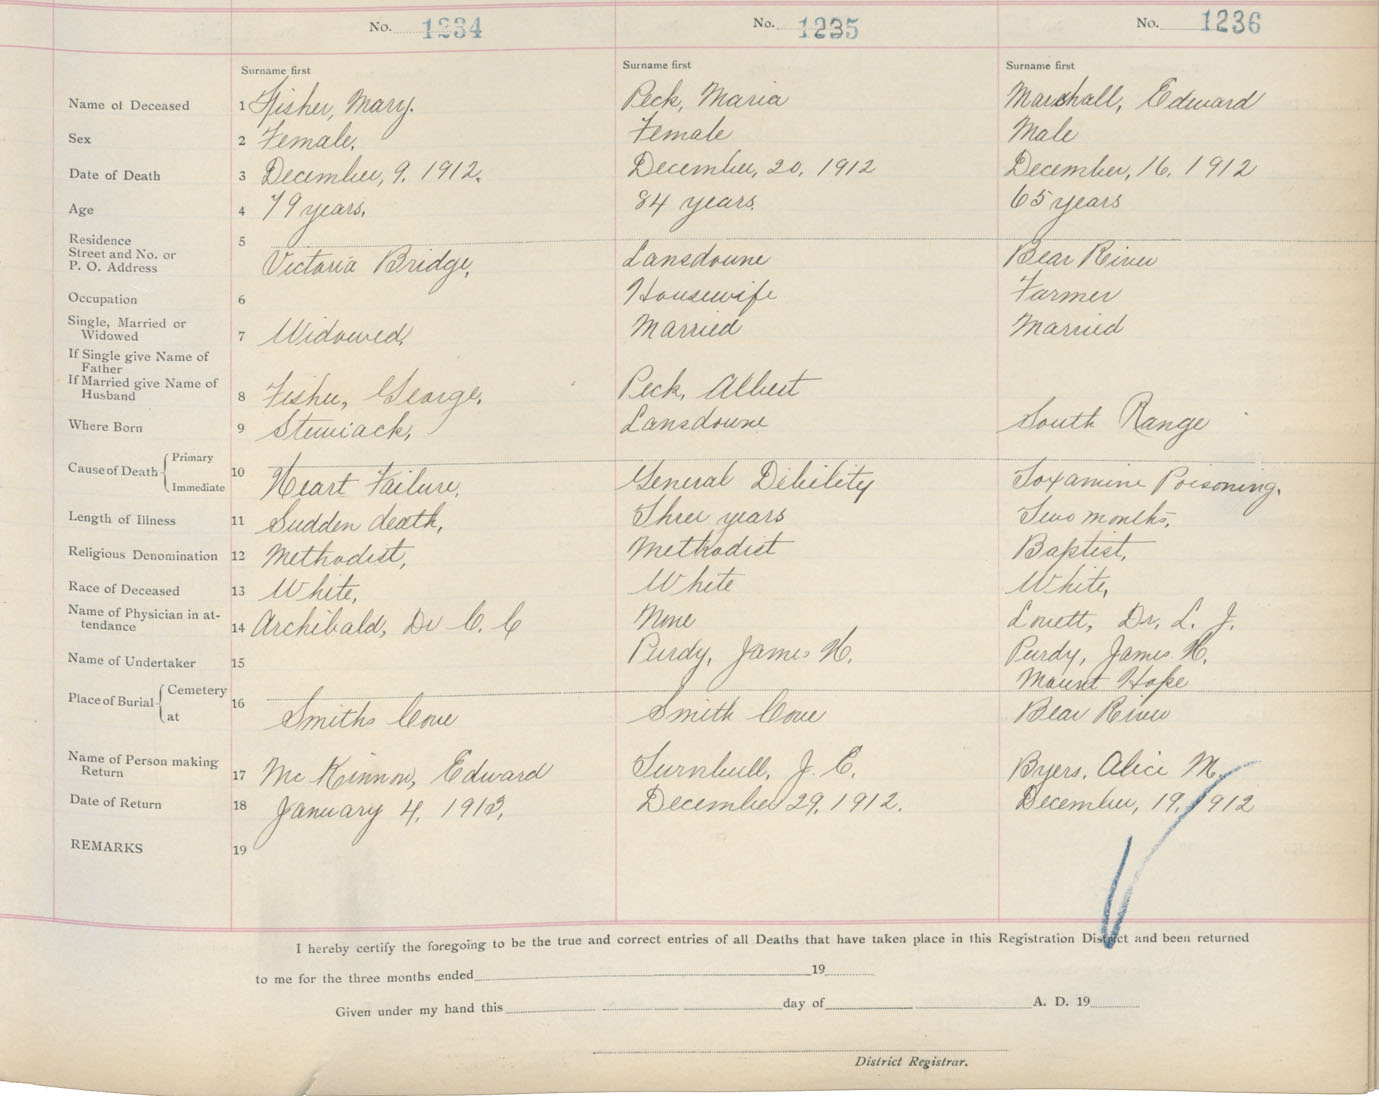 No. 1234 No. 1235 No. 1236
Surname first Surname first Surname first
Name of Deceased 1 Fisher, Mary. Peck, Maria Marshall, Edward
Sex 2 Female. Female Male
Date of Death 3 December, 9. 1912. December, 20, 1912 December, 16. 1912
Age 4 79 years. 84 years. 65 years
Residence 5
Street and No. or
P. O. Address Victoria Bridge, Lansdowne Bear River
Occupation 6 Housewife Farmer
Single, Married or
Widowed 7 Widowed, Married Married
If Single give Name of
Father
If Married give Name of
Husband 8 Fisher, George, Peck, Albert
Where Born 9 Stewiack, Lansdowne South Range
Cause of Death Primary 10
Immediate Heart Failure, General Debility Toxamine Poisoning.
Length of Illness 11 Sudden death, Three years Two months,
Religious Denomination 12 Methodist, Methodist Baptist,
Race of Deceased 13 White, White White,
Name of Physician in at-
tendance 14 Archibald, Dr C. C None Lovett, Dr. L. J.
Name of Undertaker 15 Purdy, James H. Purdy, James H.
Place of Burial Cemetery 16 Mount Hope
at Smiths Cove Smith Cove Bear River
Name of Person making
Return 17 Mc Kinnon, Edward Turnbull, J. E. Byers, Alice M.
Date of Return 18 January 4, 1913, December 29, 1912. December, 19, 1912
REMARKS 19
I hereby certify the foregoing to be the true and correct entries of all Deaths that have taken place in this Registration District and been returned
to me for the three months ended 19
Given under my hand this day of A. D. 19
District Registrar.